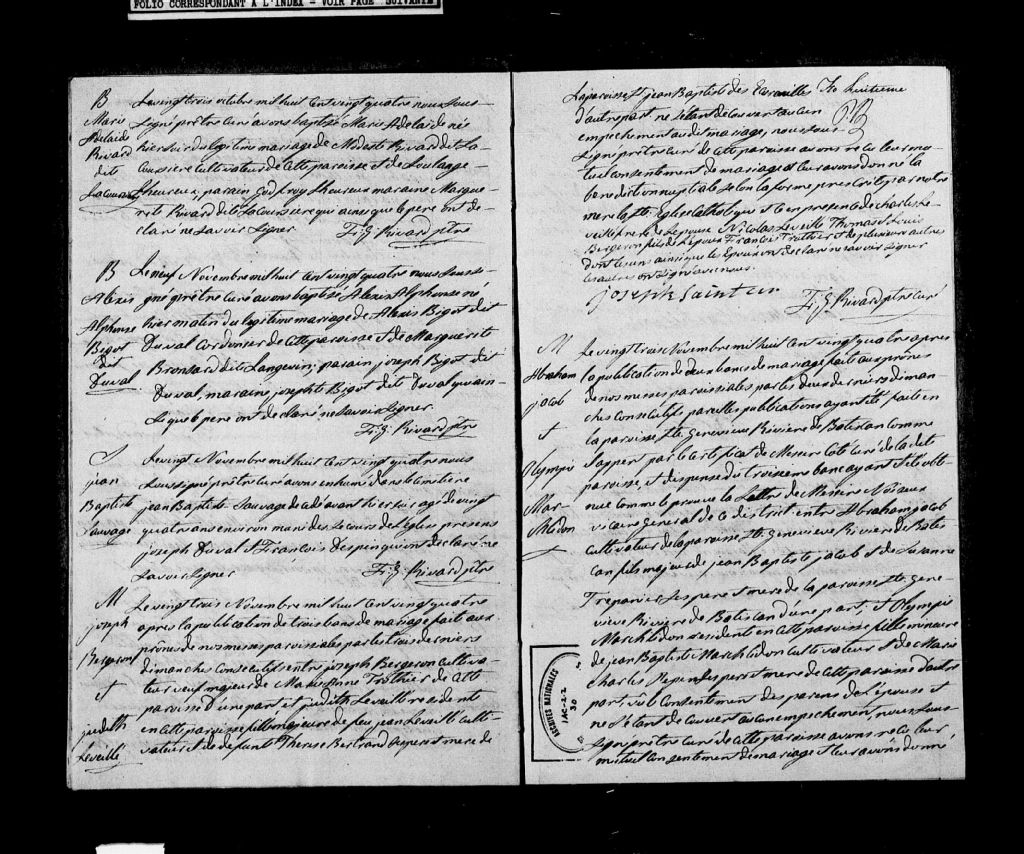 FOLIO CORRESPONDANT A L'INDEX - VOIR PAGE SUIVANTE
B
Marie
Adelaide
Rivard
dit
Lacoursiere
Le vingt trois octobre mil huit cent vingt quatre nous sous-
signé prêtre curé avons baptisé Marie Adelaide né
hier soir du legitime mariage de Modeste Rivard dit La-
coursiere cultivateur de cette paroisse et de Soulange
L'heureux, parrain Godfroy L'heureux maraine Margue-
rite Rivard dit Lacoursiere qui ainsi que le pere ont de-
claré ne savoir signer F: X: Rivard ptre
B
Alexis
Alphonse
Bigot
dit
Duval
Le neuf Novembre mil huit cent vingt quatre nous souss-
igné prêtre curé avons baptisé Alexis Alphonse né
hier matin du legitime mariage de Alexis Bigot dit
Duval Cordonier de cette paroisse et de Marguerite
Brousard dit Langevin; parain joseph Bigot dit
Duval, maraine josephte Bigot dit Duval qui ain-
si que le pere ont declaré ne savoir signer.
F: X: Rivard ptre
S
jean
Baptiste
Sauvage
Le vingt Novembre mil huit cent vingt quatre nous
soussigné prêtre curé avons enhumé dans le cimetiere
jean Baptiste Sauvage decédé avant hier soir agé de vingt
quatre ans environ muni des secours de l'eglise presens
joseph Duval et Francois Despins qui ont declaré ne
savoir signer F: X: Rivard ptre
M
joseph
Bergeron
et
judith
Leveillé
Le vingt trois Novembre mil huit cent vingt quatre
après la publication de trois bans de mariage fait aux
prônes de nos messes paroissiales par les trois derniers
dimanches consecutifs entre joseph Bergeron cultiva-
teur veuf majeur de Marie Anne Trothier de cette
paroisse d'une part, et judith Leveillé residente
en cette paroisse fille majeure de feu jean Leveillé culti-
vateur et de defunte Therese Bertrand ses pere et mere de
La paroisse St jean Baptiste des Ecureuilles Fo huitieme
d'autre part. ne s'étant decouvert aucun P.R
empechement au dit mariage, nous sous-
signé prêtre curé de cette paroisse avons recu leur mu-
tuel consentement de mariage et leur avons donné la
benediction nuptiale selon la forme prescrite par notre
mere la Ste Eglise Catholique et ce en presence de charles Le-
veillé frere de l'epouse Nicolas Leveillé Thomas et Louis
Bergeron fils de l'epoux Francois Trothier et de plusieurs autres
dont les uns ainsi que les Epoux ont declaré ne savoir signer
les autres ont signé avec nous.
joseph Saintcir
F: X: Rivard ptre curé
M
Abraham
jacob
et
Olympe
Mar-
childon
Le vingt trois Novembre mil huit cent vingt quatre apres
la publication de deux bans de mariage faite aux prônes
de nos messes paroissiales par les deux derniers diman-
ches consecutifs pareilles publications ayant eté faite en
la paroisse Ste Genevieve Riviere de Batiscan comme
Il appert par le certificat de Messire Coté curé de la dite
paroisse, et dispense du troisieme banc ayant eté obte-
nue comme le prouve la Lettre de Messire Noiseux
vicaire general de ce district entre Abraham jacob
cultivateur de la paroisse Ste Genevieve Riviere de Batis-
can fils majeur de jean Baptiste jacob et de Susanne
Trepanier ses pere et mere de la paroisse Ste Gene-
vieve Riviere de Batiscan d'une part, et Olympe
Marchildon residente en cette paroisse fille mineure
de jean Baptiste Marchildon cultivateur et de Marie
Charles Pepin ses pere et mere de cette paroisse d'autre
part, vu le consentement des parens de l'epouse et
ne s'étant decouvert aucun empechement, nous sous-
signé prêtre curé de cette paroisse avons recu leur
mutuel consentement de mariage et leur avons donné
ARCHIVES NATIONALES